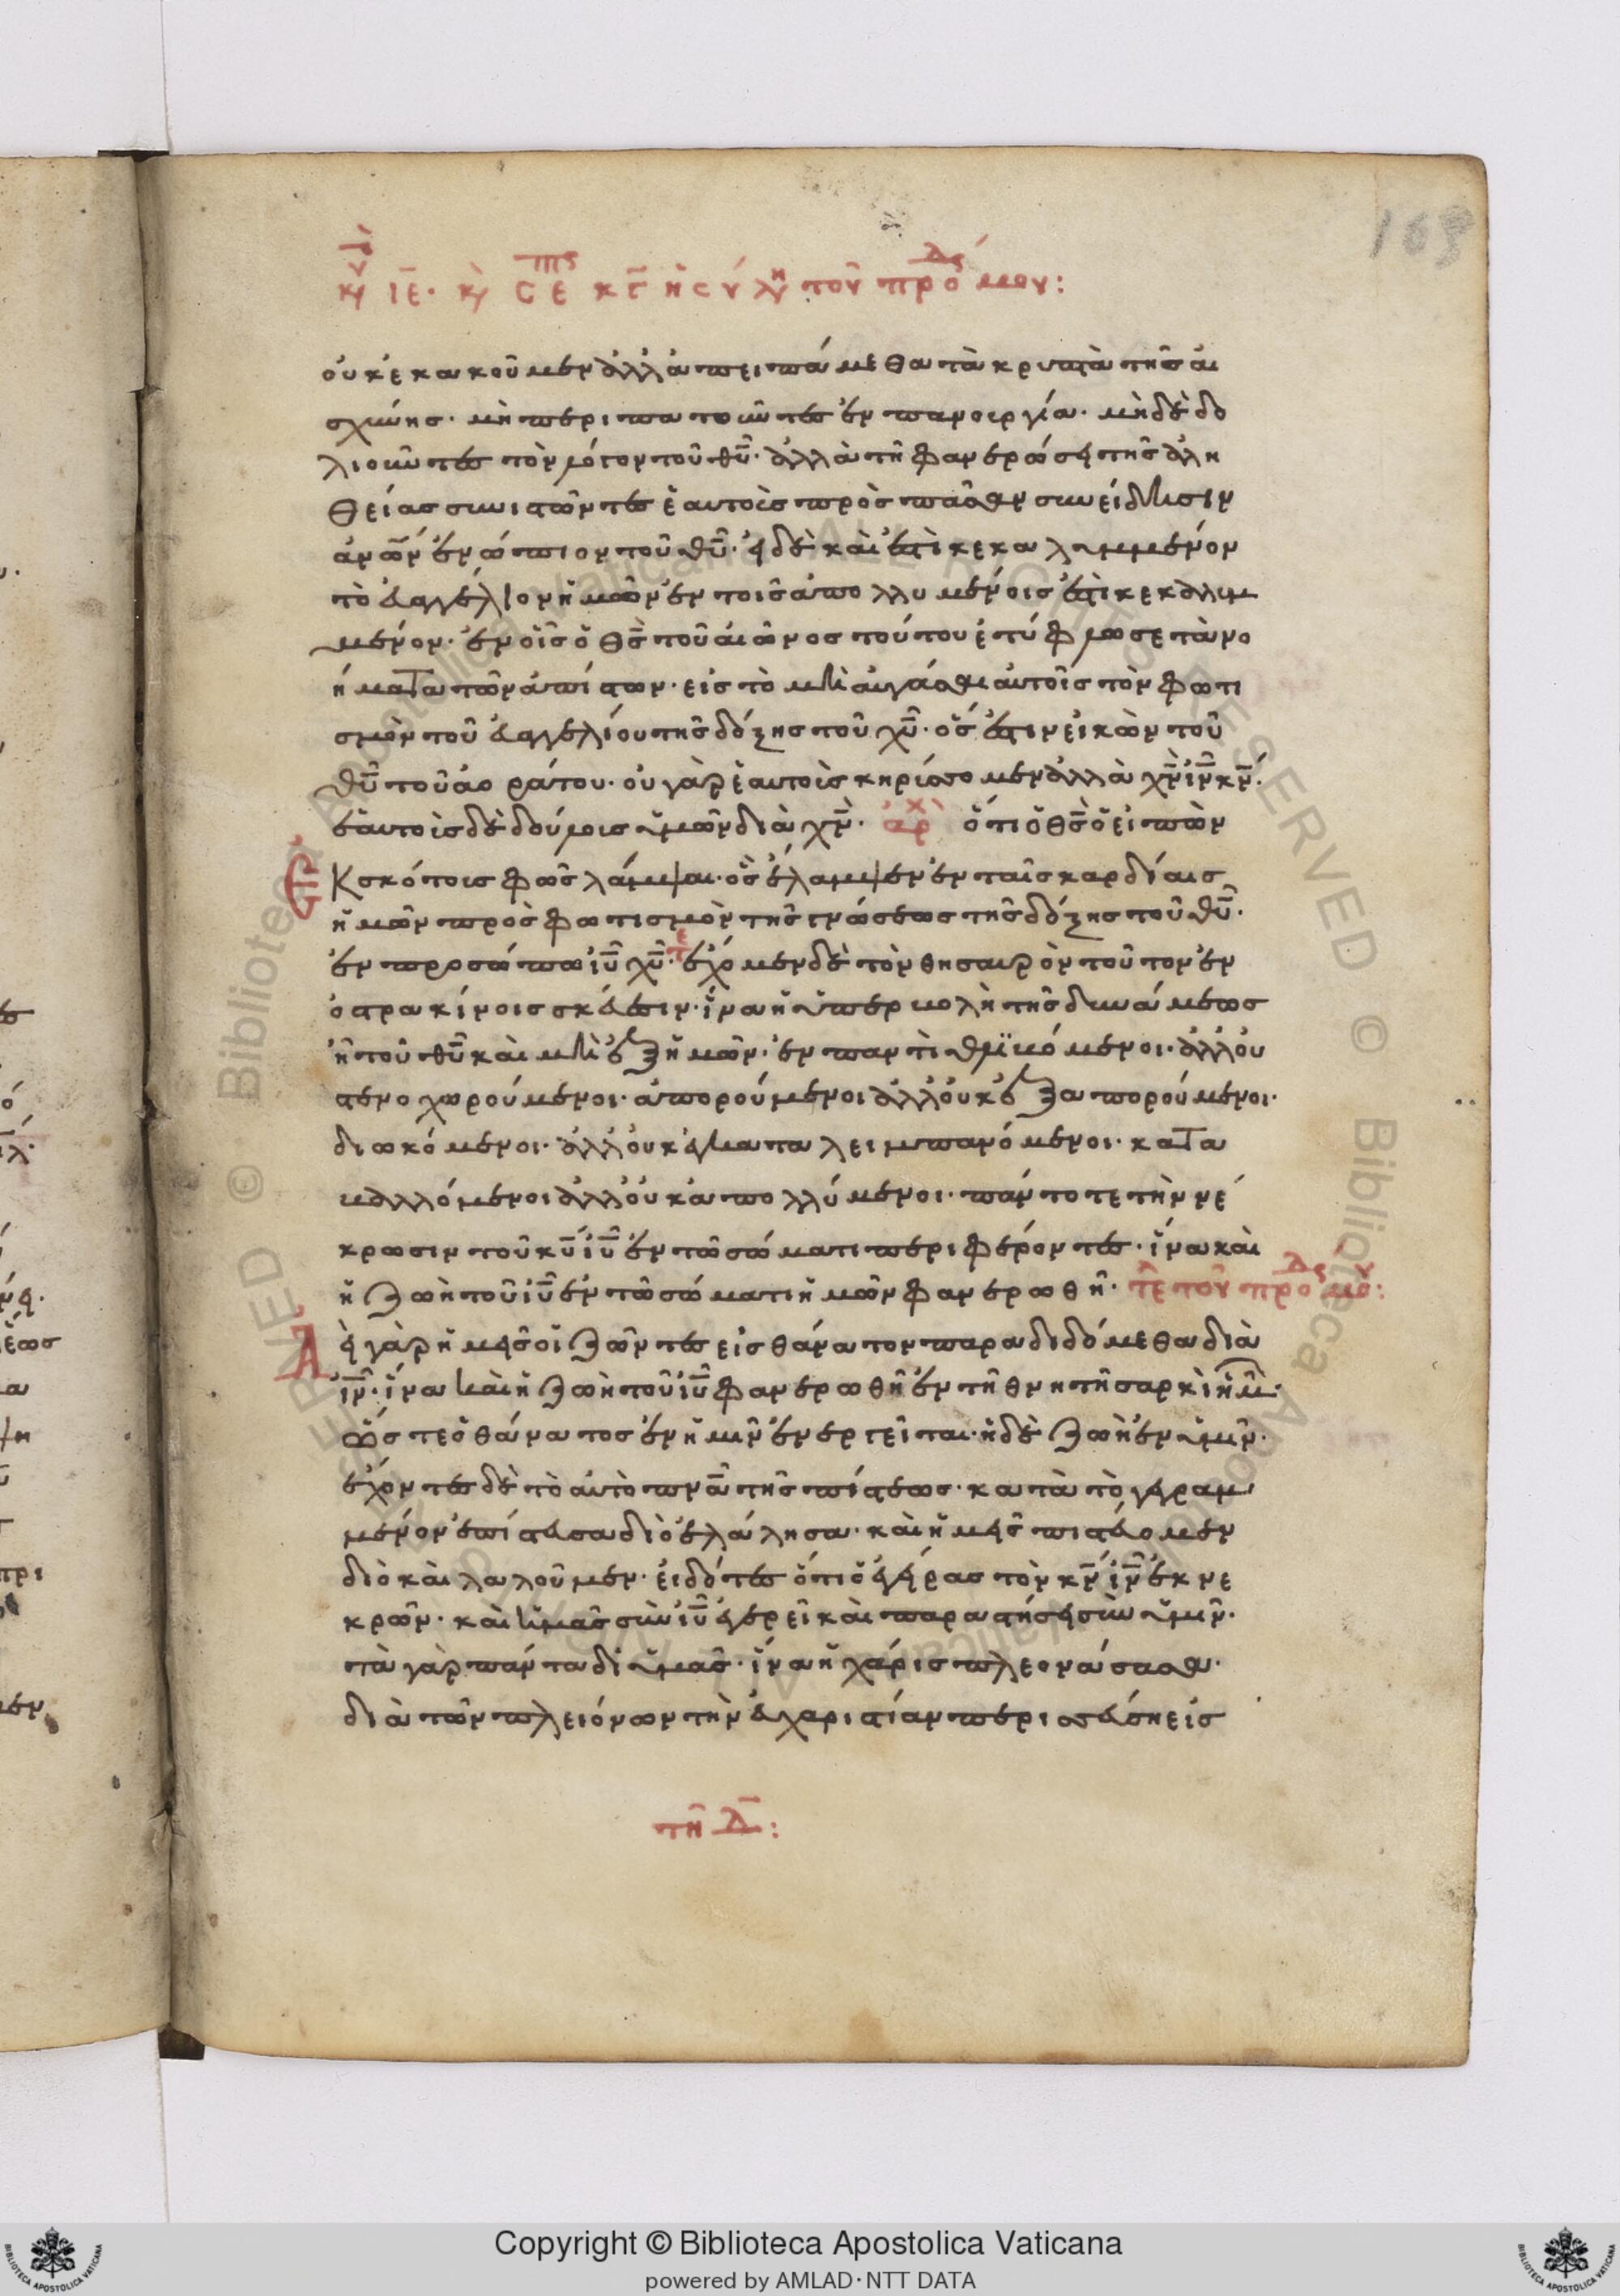 163
κυ ιε. κη ϛ ε κτ η συλη του προ μου:
οὐκ ἐκακοῦμεν ἀλλ ἀπειπάμεθα τὰ κρυπτὰ τῆς αἰ
σχύνης. μὴ περιπατοῦντες ἐν πανουργία. μὴδὲ δο
λιοῦντες τὸν λόγον τοῦ θυ. ἀλλὰ τῆ φανερώσει τῆς ἀλη
θείας συνιστῶντες ἑαυτοὺς πρὸς πᾶσαν συνείδησιν
ἀνων ἐνώπιον τοῦ θυ. εἰ δὲ καὶ ἐστὶ κεκαλυμμένον
τὸ εὐαγγέλιον ἡμῶν ἐν τοῖς ἀπολλυμένοις ἐστὶ κεκαλυμ
μένον. ἐν οἷς ὁ θς τοῦ αἰῶνος τούτου ἐτύφλωσε τὰ νο
ήματα τῶν ἀπίστων. εἰς τὸ μὴ αὐγάσαι αὐτοῖς τὸν φωτι
σμὸν τοῦ εὐαγγελίου τῆς δόξης τοῦ χυ. ὅς ἐστιν εἰκὼν τοῦ
θυ τοῦ ἀοράτου. οὐ γὰρ ἑαυτοὺς κηρύσσομεν ἀλλὰ χν ιν κν.
ἑαυτοὺς δὲ δούλους ὑμῶν διὰ χν. ἀρχ ὅτι ὁ θς ὁ εἰπὼν
ἐκ σκότους φῶς λάμψαι. ὃς ἔλαμψεν ἐν ταῖς καρδίαις
ἡμῶν πρὸς φωτισμὸν τῆς γνώσεως τῆς δόξης τοῦ θυ.
ἐν προσώπω ιυ χυ. τε ἔχομεν δὲ τὸν θησαυρὸν τοῦτον ἐν
ὀστρακίνοις σκεύεσιν. ἵνα ἡ ὑπερβολὴ τῆς δυνάμεως
ἦ τοῦ θυ καὶ μὴ ἐξ ἡμῶν. ἐν παντὶ θλιβόμενοι. ἀλλ οὐ
στενοχωρούμενοι. ἀπορούμενοι ἀλλ οὐκ ἐξαπορούμενοι.
διωκόμενοι. ἀλλ οὐκ ἐγκαταλειμπανόμενοι. κατα
βαλλόμενοι ἀλλ οὐκ ἀπολλύμενοι. πάντοτε τὴν νέ
κρωσιν τοῦ κυ ιυ ἐν τῶ σώματι περιφέροντες. ἵνα καὶ
ἡ ζωὴ τοῦ ιυ ἐν τῶ σώματι ἡμῶν φανερωθῆ. τε τοῦ προ μου:
ἀεὶ γὰρ ἡμεῖς οἱ ζῶντες εἰς θάνατον παραδιδόμεθα διὰ
ιν. ἵνα καὶ ἡ ζωὴ τοῦ ιυ φανερωθῆ ἐν τῆ θνητῆ σαρκὶ ἡμ.
ὥστε ὁ θάνατος ἐν ἡμῖν ἐνεργεῖται. ἡ δὲ ζωὴ ἐν ὑμῖν.
ἔχοντες δὲ τὸ αὐτὸ πνα τῆς πίστεως. κατὰ τὸ γεγραμ
μένον ἐπίστευσα διὸ ἐλάλησα. καὶ ἡμεῖς πιστεύομεν
διὸ καὶ λαλοῦμεν. εἰδότες ὅτι ὁ ἐγείρας τὸν κν ιν ἐκ νε
κρῶν. καὶ ἡμᾶς σὺν ιυ ἐγερεῖ καὶ παραστήσει σὺν ὑμῖν.
τὰ γὰρ πάντα δι ὑμᾶς. ἵνα ἡ χάρις πλεονάσασα.
διὰ τῶν πλειόνων τὴν εὐχαριστίαν περισσεύση εἰς
τῆ Δ:
Copyright © Biblioteca Apostolica Vaticana
powered by AMLAD·NTT DATA